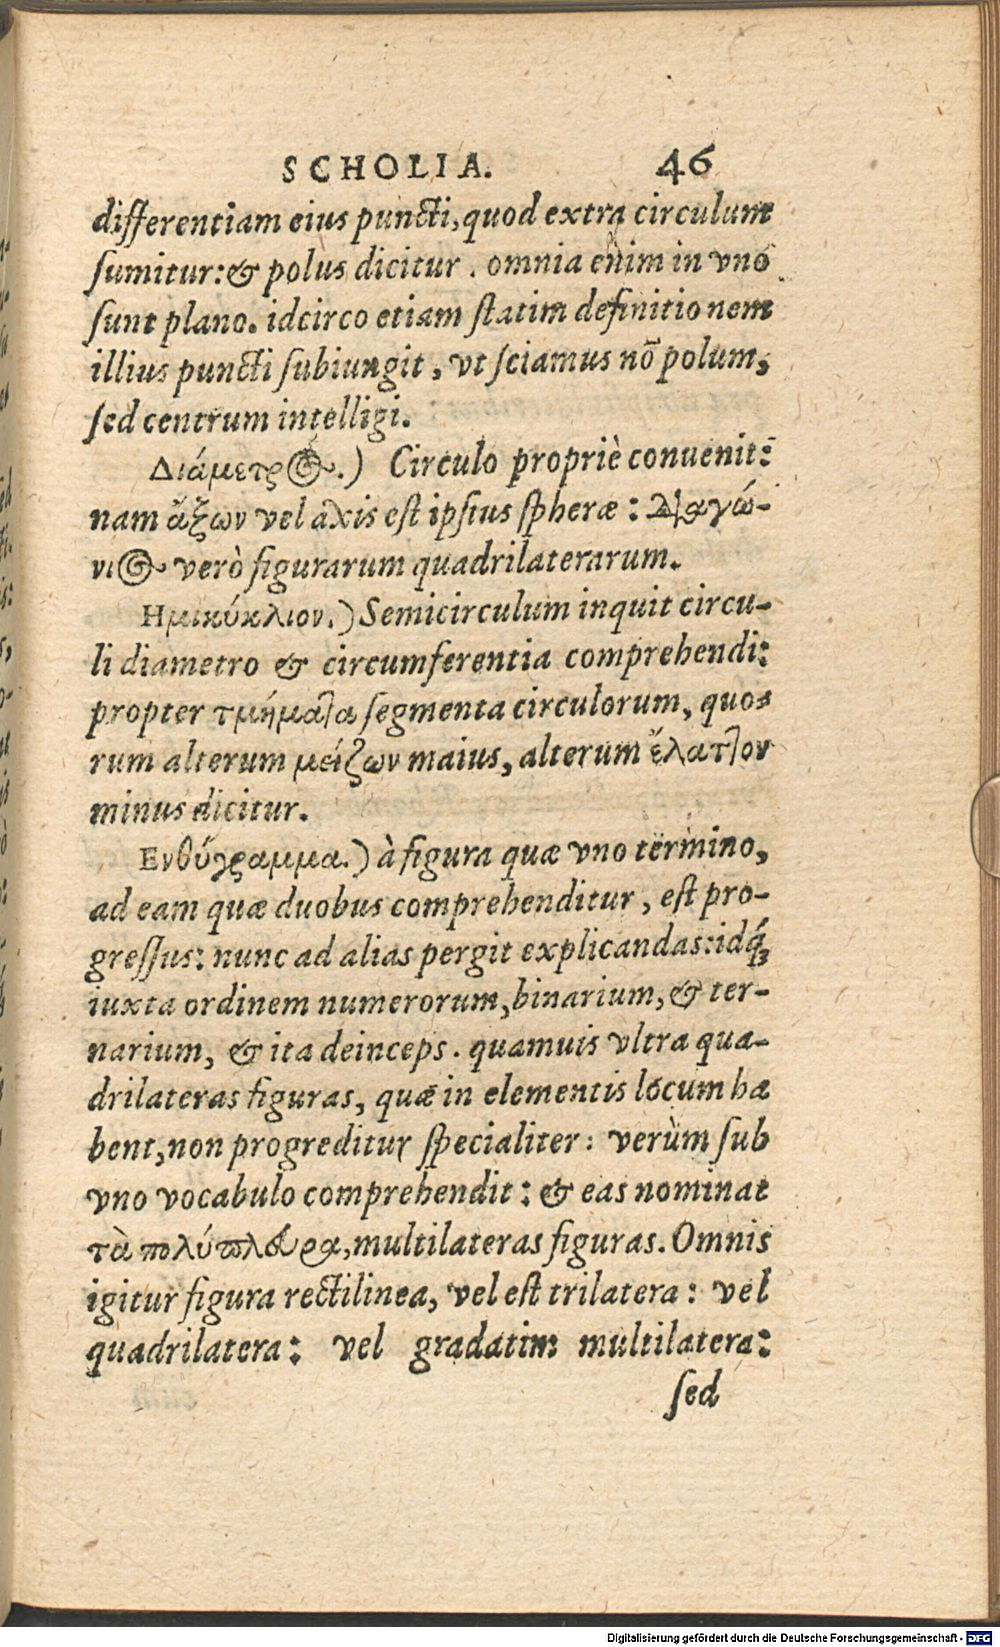 SCHOLIA. 46
differentiam eius puncti, quod extra circulum
ſumitur: & polus dicitur. omnia enim in vno
ſunt plano. idcirco etiam ſtatim definitionem
illius puncti ſubiungit, vt ſciamus nõ polum,
ſed centrum intelligi.
Διάμετρος.) Circulo propriè conuenit:
nam ἄξων vel axis eſt ipſius ſpheræ: Διαγώ-
νιος verò figurarum quadrilaterarum.
Ημικύκλιον.) Semicirculum inquit circu-
li diametro & circumferentia comprehendi:
propter τμήματα ſegmenta circulorum, quo-
rum alterum μείζων maius, alterum ἔλαττον
minus dicitur.
Ευθύγραμμα.) à figura quæ vno termino,
ad eam quæ duobus comprehenditur, eſt pro-
greſſus: nunc ad alias pergit explicandas: idq́;
iuxta ordinem numerorum, binarium, & ter-
narium, & ita deinceps. quamuis vltra qua-
drilateras figuras, quæ in elementis locum ha
bent, non progreditur ſpecialiter: verùm ſub
vno vocabulo comprehendit: & eas nominat
τὰ πολύπλευρα, multilateras figuras. Omnis
igitur figura rectilinea, vel eſt trilatera: vel
quadrilatera: vel gradatim multilatera:
ſed
Digitalisierung gefördert durch die Deutsche Forschungsgemeinschaft - DFG